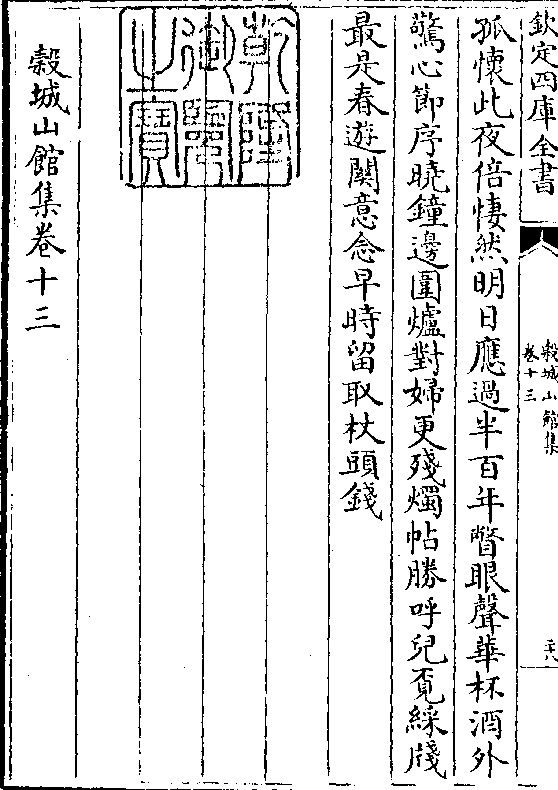 欽定四庫全書
穀城山館集
卷十三
二十八
孤懷此夜倍悽然明日應過半百年瞥眼聲華杯酒外
驚心節序曉鐘邊圍爐對婦更殘燭帖勝呼兒覓綵牋
最是春遊闗意念早時留取杖頭錢
乾隆御覽之寶
穀城山館集卷十三